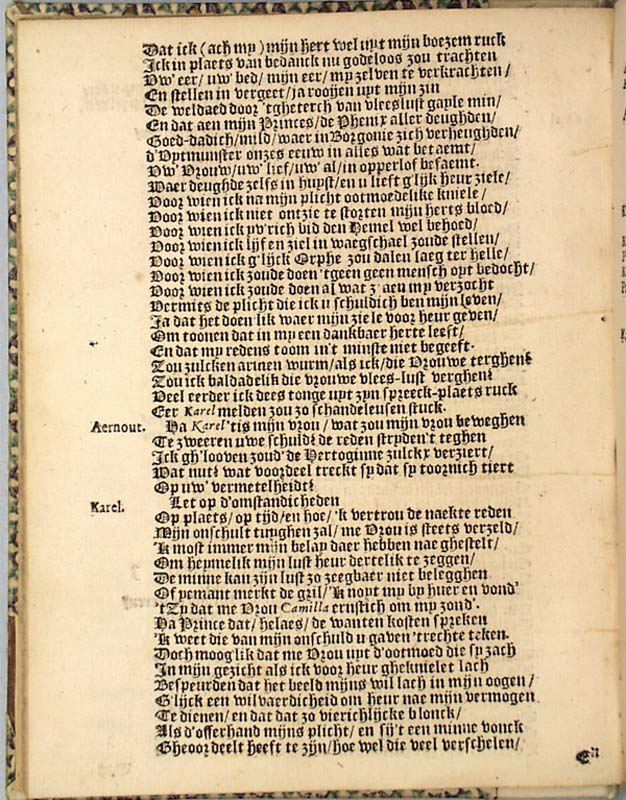 Dat ick (ach my) mijn hert wel uyt mijn boezem ruck
Ick in plaets van bedanck nu godeloos zou trachten
Uw' eer/ uw' bed/ mijn eer/ my zelven te verkrachten/
En stellen in vergeet/ ja rooijen uyt mijn zin
De weldaed door 'tgheterch van vleeslust gayle min/
En dat aen mijn Princes/ de Phenix aller deughden/
Goed-dadich/ mild/ waer in Borgonie zich verheughden/
d'Uytmunster onzes eeuw in alles wat betaemt/
Uw' Vrouw/ uw' lief/ uw' al/ in opperlof befaemt.
Waer deughde zelfs in huyst/ en u lieft g'lijk heur ziele/
Voor wien ick na mijn plicht ootmoedelike kniele/
Voor wien ick niet ontzie te storten mijn herts bloed/
Voor wien ick yv'rich bid den Hemel wel behoed/
Voor wien ick lijf en ziel in waegschael zoude stellen/
Voor wien ick g'lijck Orphe zou dalen laeg ter helle/
Voor wien ick zoude doen 'tgeen geen mensch oyt bedocht/
Voor wien ick zoude doen al wat z' aen my verzocht
Vermits de plicht die ick u schuldich ben mijn leven/
Ja dat het doenlik waer mijn ziele voor heur geven/
Om toonen dat in my een dankbaer herte leeft/
En dat my redens toom in't minste niet begeeft.
Zou zulcken armen wurm/ als ick/ die Vrouwe terghen?
Zou ick baldadelik die vrouwe vlees-lust verghen?
Veel eerder ick dees tonge uyt zyn spreeck-plaets ruck
Eer Karel melden zou zo schandeleusen stuck.
Aernout. Ha Karel 'tis mijn vrou/ wat zou mijn vrou beweghen
Te zweeren uwe schuld? de reden stryden't teghen
Ick gh'looven zoud' de Hertoginne zulckx verziert/
Wat nut? wat voordeel treckt sy dat sy toornich tiert
Op uw' vermetelheidt?
Karel. Let op d'omstandicheden
Op plaets/ op tijd/ en hoe/ 'k vertrou de naekte reden
Mijn onschult tuyghen zal/ me Vrou is steets verzeld/
'K most immer mijn belay daer hebben nae ghestelt/
Om heymelik mijn lust heur dertelik te zeggen/
De minne kan zijn lust zo zeegbaer niet belegghen
Of yemant merkt de gril/ 'k noyt my by huer en vond'
'tZy dat me Vrou Camilla ernstich om my zond'.
Ha Prince dat/ helaes/ de wanten kosten spreken
'K weet die van mijn onschuld u gaven 'trechte teken.
Doch mooglik dat me Vrou uyt d'ootmoed die sy zach
In mijn gezicht als ick voor heur gheknielet lach
Bespeurden dat het beeld mijns wil lach in mijn oogen/
G'lijck een wilvaerdicheid om heur nae mijn vermogen
Te dienen/ en dat dat zo vierichlijcke blonck/
Als d'offerhand mijns plicht/ en sij't een minne vonck
Gheoordeelt heeft te zijn/ hoe wel die veel verschelen/
En